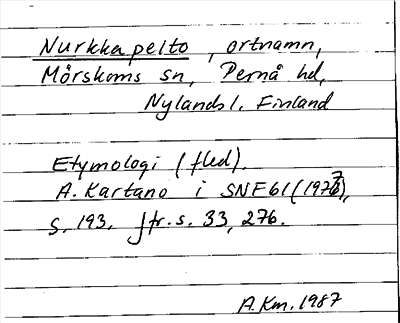 Nurkkapelto, ortnamn,
Mörskoms sn, Pernå hd,
Nylands l. Finland
Etymologi (fled).
A. Kartano i SNF 61 (1977),
s. 193. Jfr. s. 33, 276.
A.Km. 1987